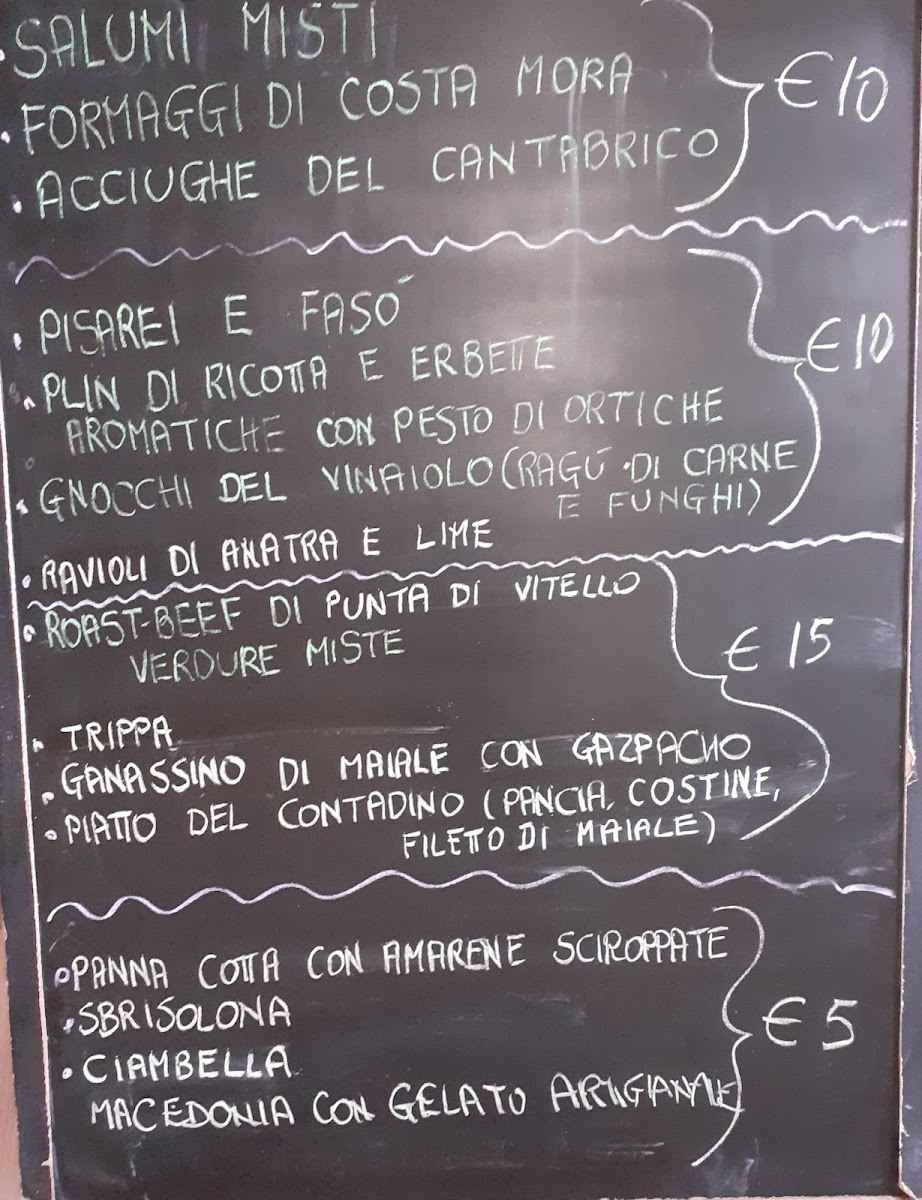 • SALUMI MISTI
• FORMAGGI DI COSTA MORA
• ACCIUGHE DEL CANTABRICO
€10
• PISAREI E FASÓ
• PLIN DI RICOTTA E ERBETTE
AROMATICHE CON PESTO DI ORTICHE
• GNOCCHI DEL VINAIOLO (RAGÚ DI CARNE
E FUNGHI)
• RAVIOLI DI ANATRA E LIME
€10
• ROAST-BEEF DI PUNTA DI VITELLO
VERDURE MISTE
• TRIPPA
• GANASSINO DI MAIALE CON GAZPACHO
• PIATTO DEL CONTADINO (PANCIA, COSTINE,
FILETTO DI MAIALE)
€ 15
• PANNA COTTA CON AMARENE SCIROPPATE
• SBRISOLONA
• CIAMBELLA
MACEDONIA CON GELATO ARTIGIANALE
€ 5